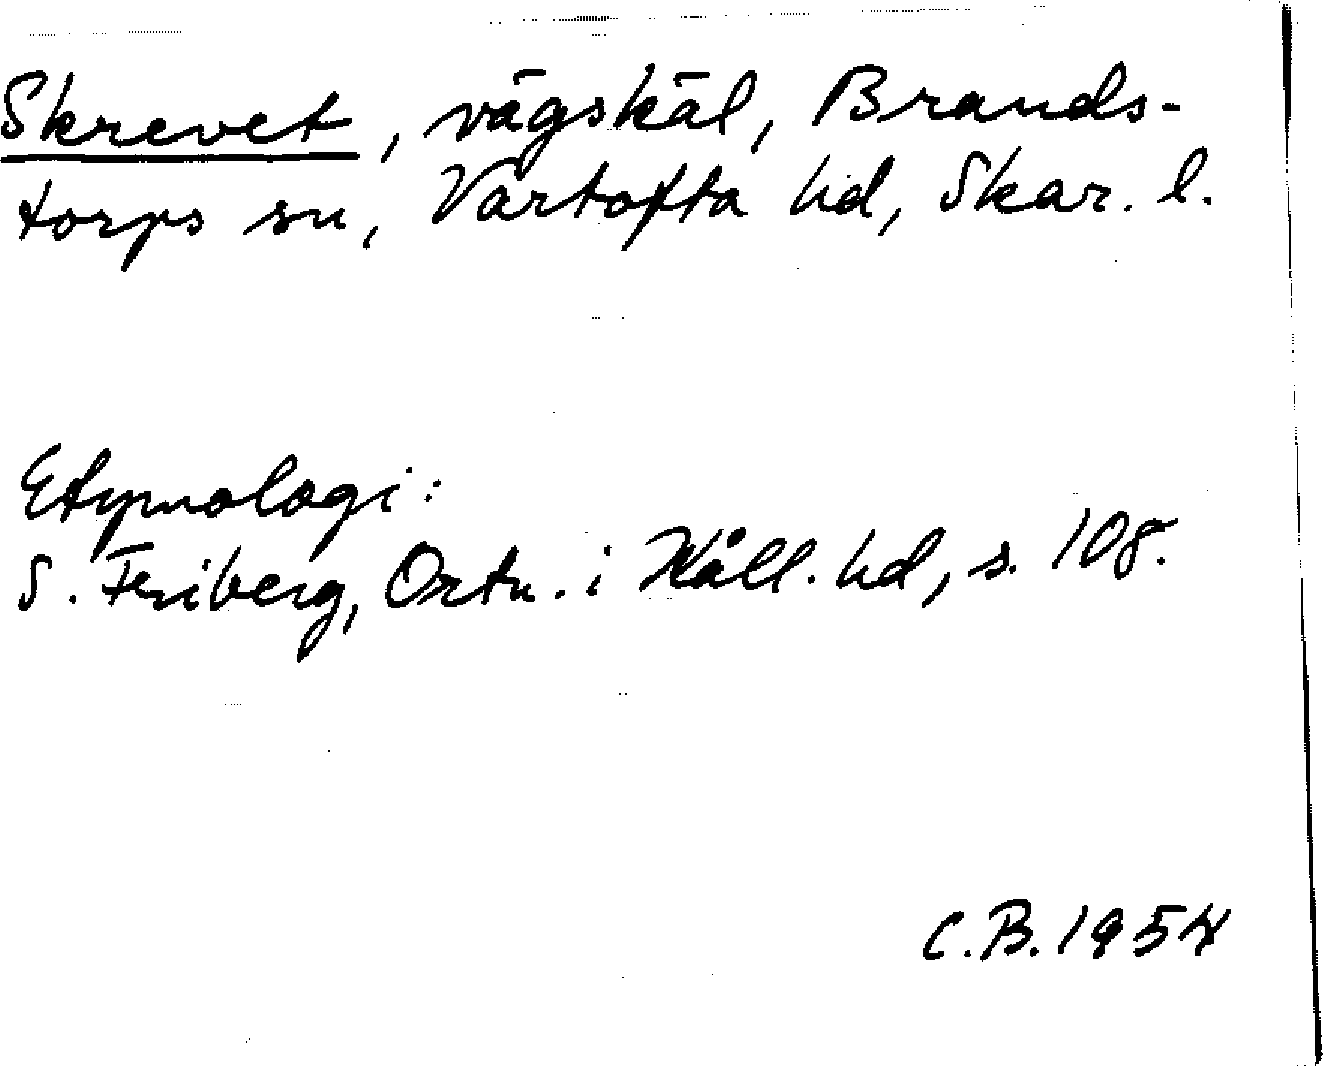 Skrevet, vägskäl, Brands-
torps sn, Vartofta hd, Skar. l.
Etymologi:
S. Friberg, Ortn. i Kåll. hd, s. 108.
C.B. 1954